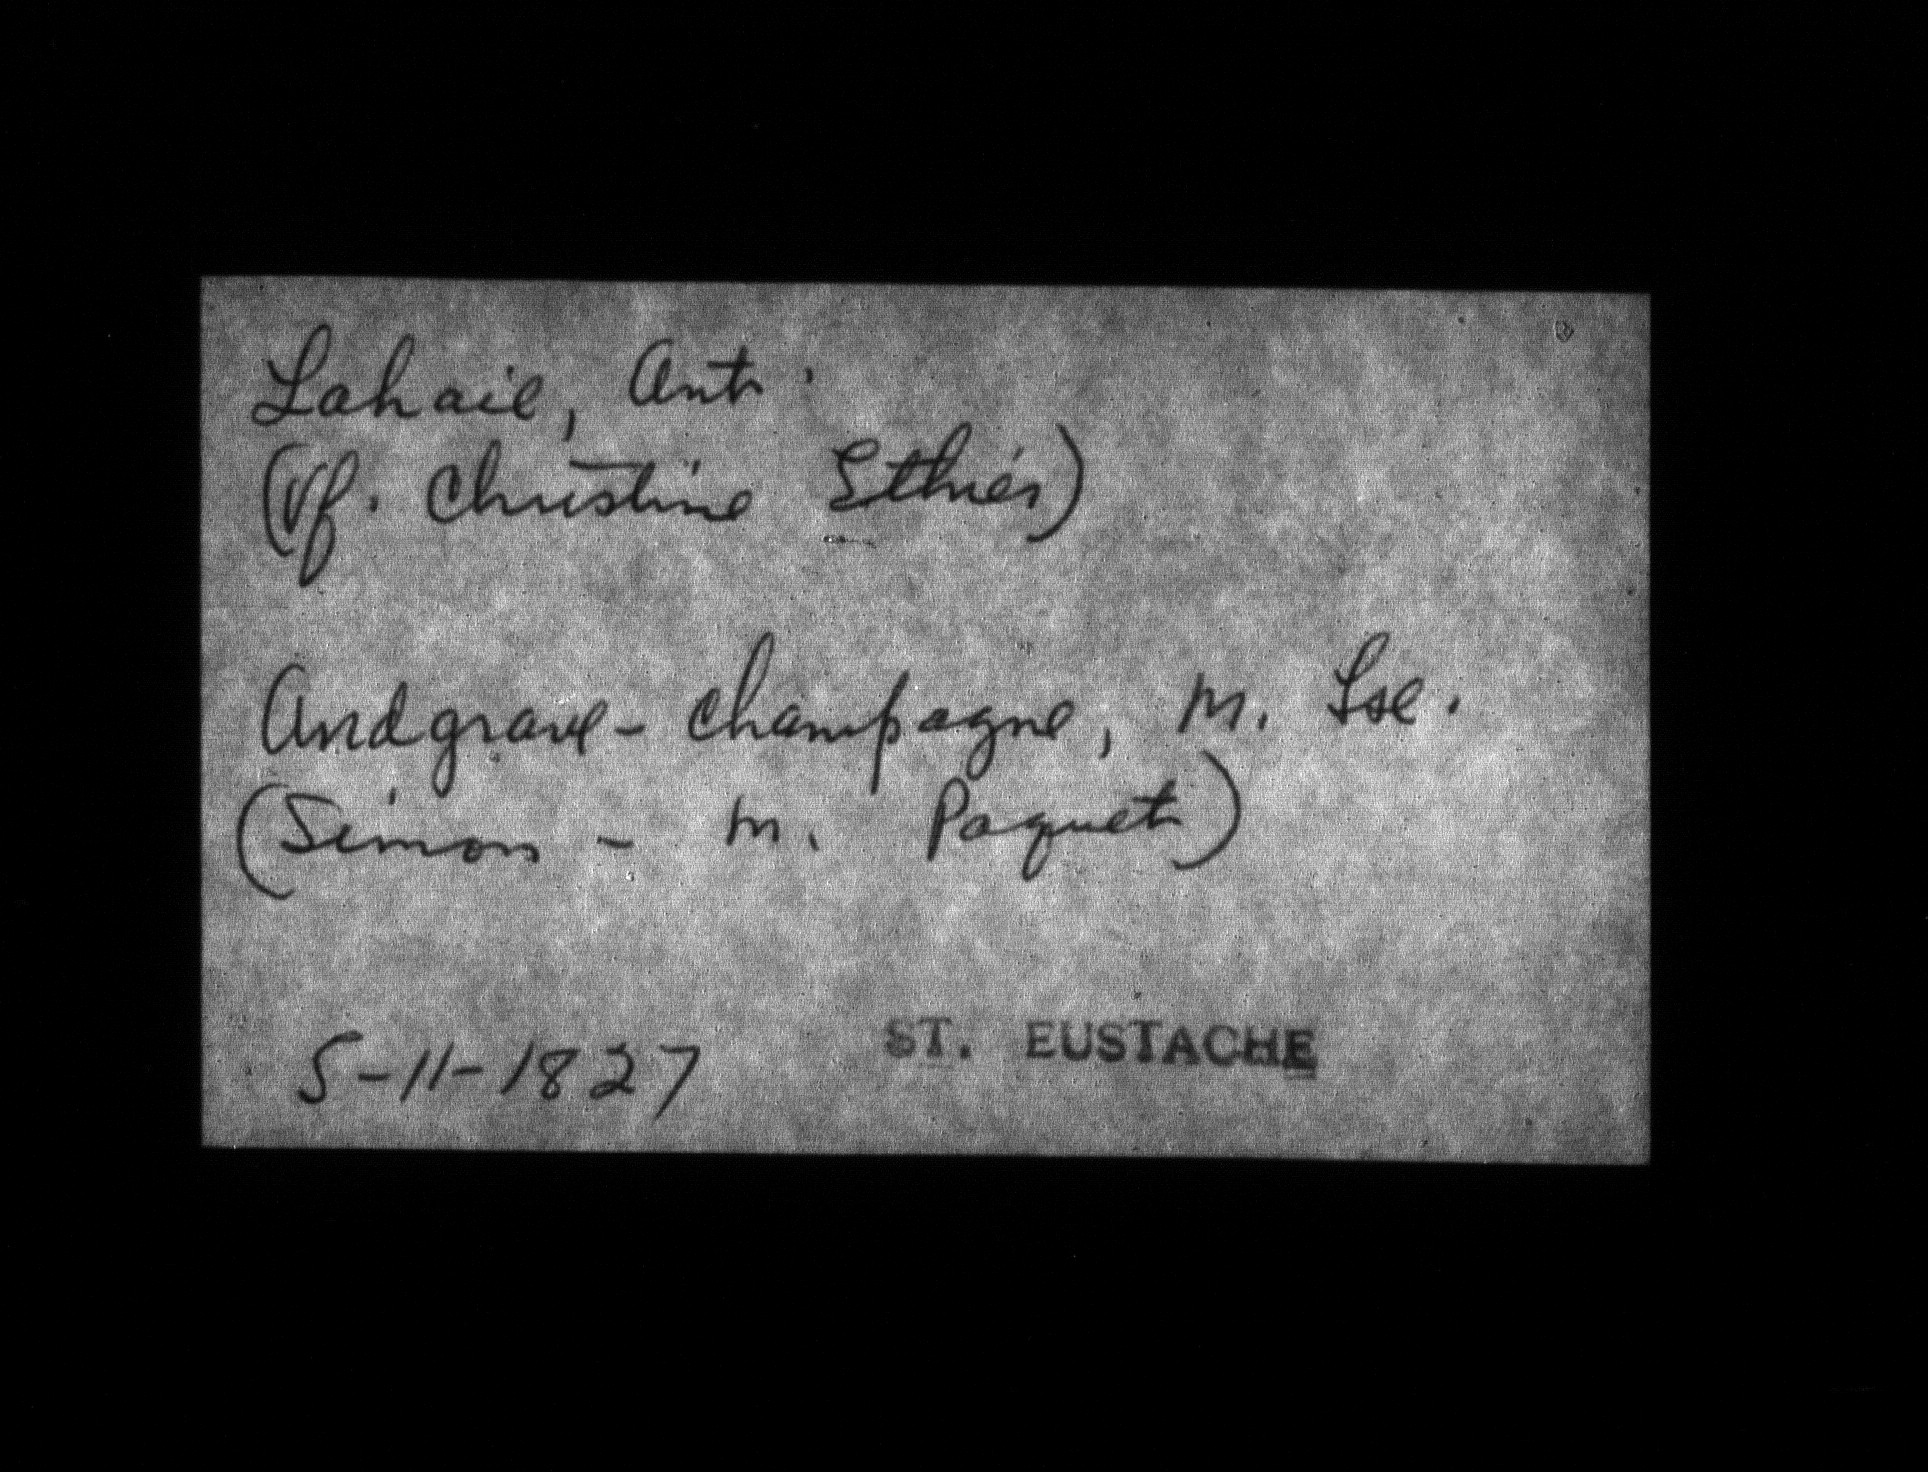 Lahaie, Ant.
(Vf. Christine Ethiér)
Andgrave - Champagne, M. Lse.
(Simon - M. Paquet)
5-11-1827 ST. EUSTACHE